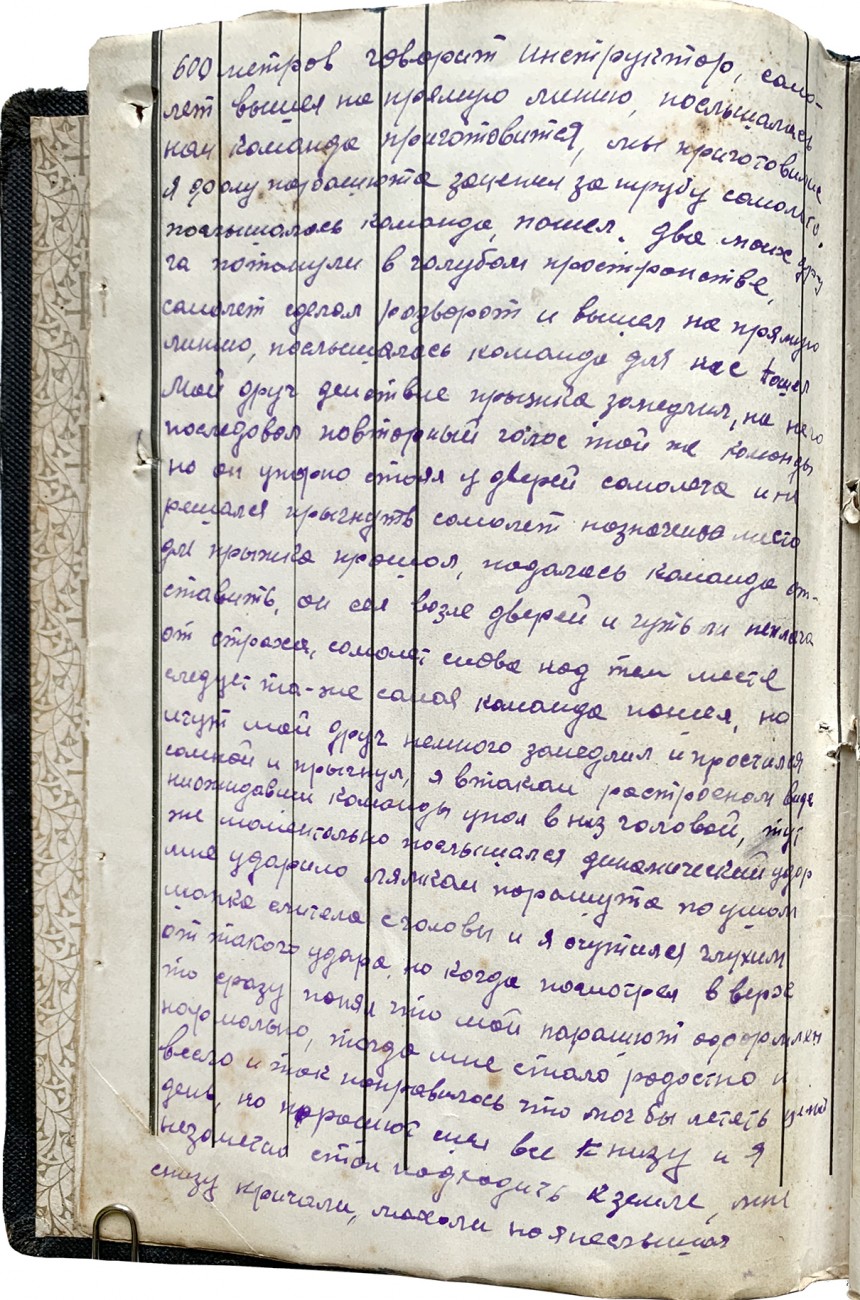 600 метров говорит инструктор, само-
лет вышел на прямую линию, послышалась
нам команда приготовится, мы приготовились
я фалу парашюта зацепил за трубу самолета.
послышалось команда, пошел. Два моих дру
га потонули в голубом пространстве,
самолет сделал розворот и вышел на прямую
линию, послышалась команда для нас пошел
Мой друг действие прыжка замедлил, на него
последовал повторный голос той же команды
но он упорно стоял у дверей самолета и не
решался прыгнуть самолет назначеное место
для прыжка прошол, подалась команда от-
ставить, он сел возле дверей и чуть ли неплача
от страха, самолет снова над тем месте
следует та-же самая команда пошел, но
и тут мой друг немного замедлил и простился
сомной и прыгнул, я втаком растроеном виде
неожидавши команды упол в низ головой, тут
же моментально послышался динамический удар
мне ударило лямкам парашута по ушам
шапка слитела сголовы и я очутился глухим
от такого удара, но когда посмотрел в верх
то сразу понял что мой парашют оформлен
нормально, тогда мне стало радостно и
весело и так понравилось что мог бы летать целый
день, но парашют шел все книзу и я
незаметил стал подходить кземле, мне
снизу кричали, махали но янеслышал